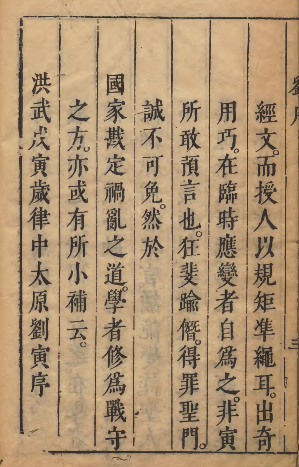 經文。而授人以規矩準繩耳。出奇
用巧。在臨時應變者自爲之。非寅
所敢預言也。狂斐踰僭。得罪聖門。
誠不可免。然於
國家戡定禍亂之道。學者修爲戰守
之方。亦或有所小補云。
洪武戊寅歲律中太原劉寅序